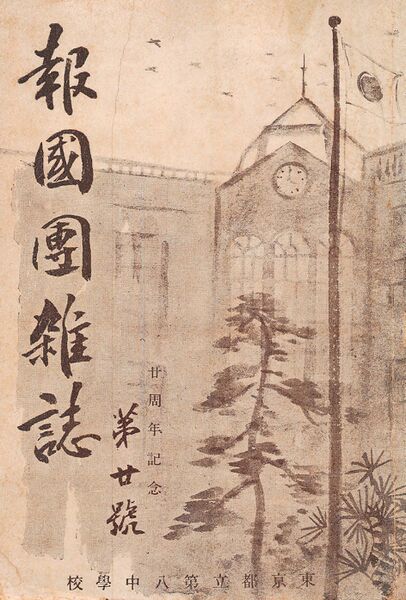 報國團雜誌
廿周年記念
第廿號
東京都立第八中學校